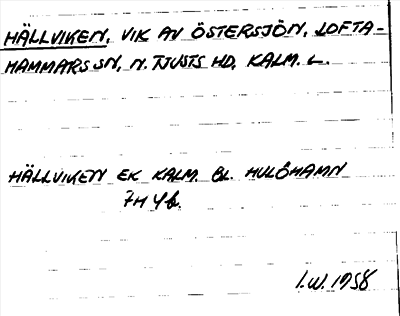 HÄLLVIKEN, VIK AV ÖSTERSJÖN, LOFTA-
HAMMARS SN, N. TJUSTS HD, KALM. L.
HÄLLVIKEN EK KALM. BL. HULÖHAMN
7H 4b.
I.W. 1958